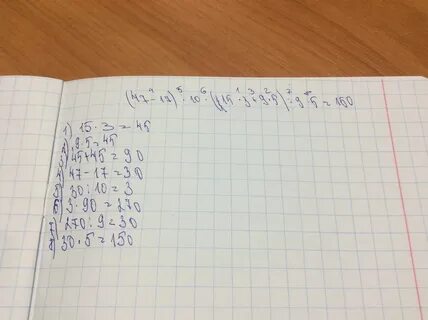 (47-17) : 10 · (15·3+9·5) : 9·5=150
1) 15·3=45
2) 9·5=45
3) 45+45=90
4) 47-17=30
5) 30:10=3
6) 3·90=270
7) 270:9=30
8) 30·5=150